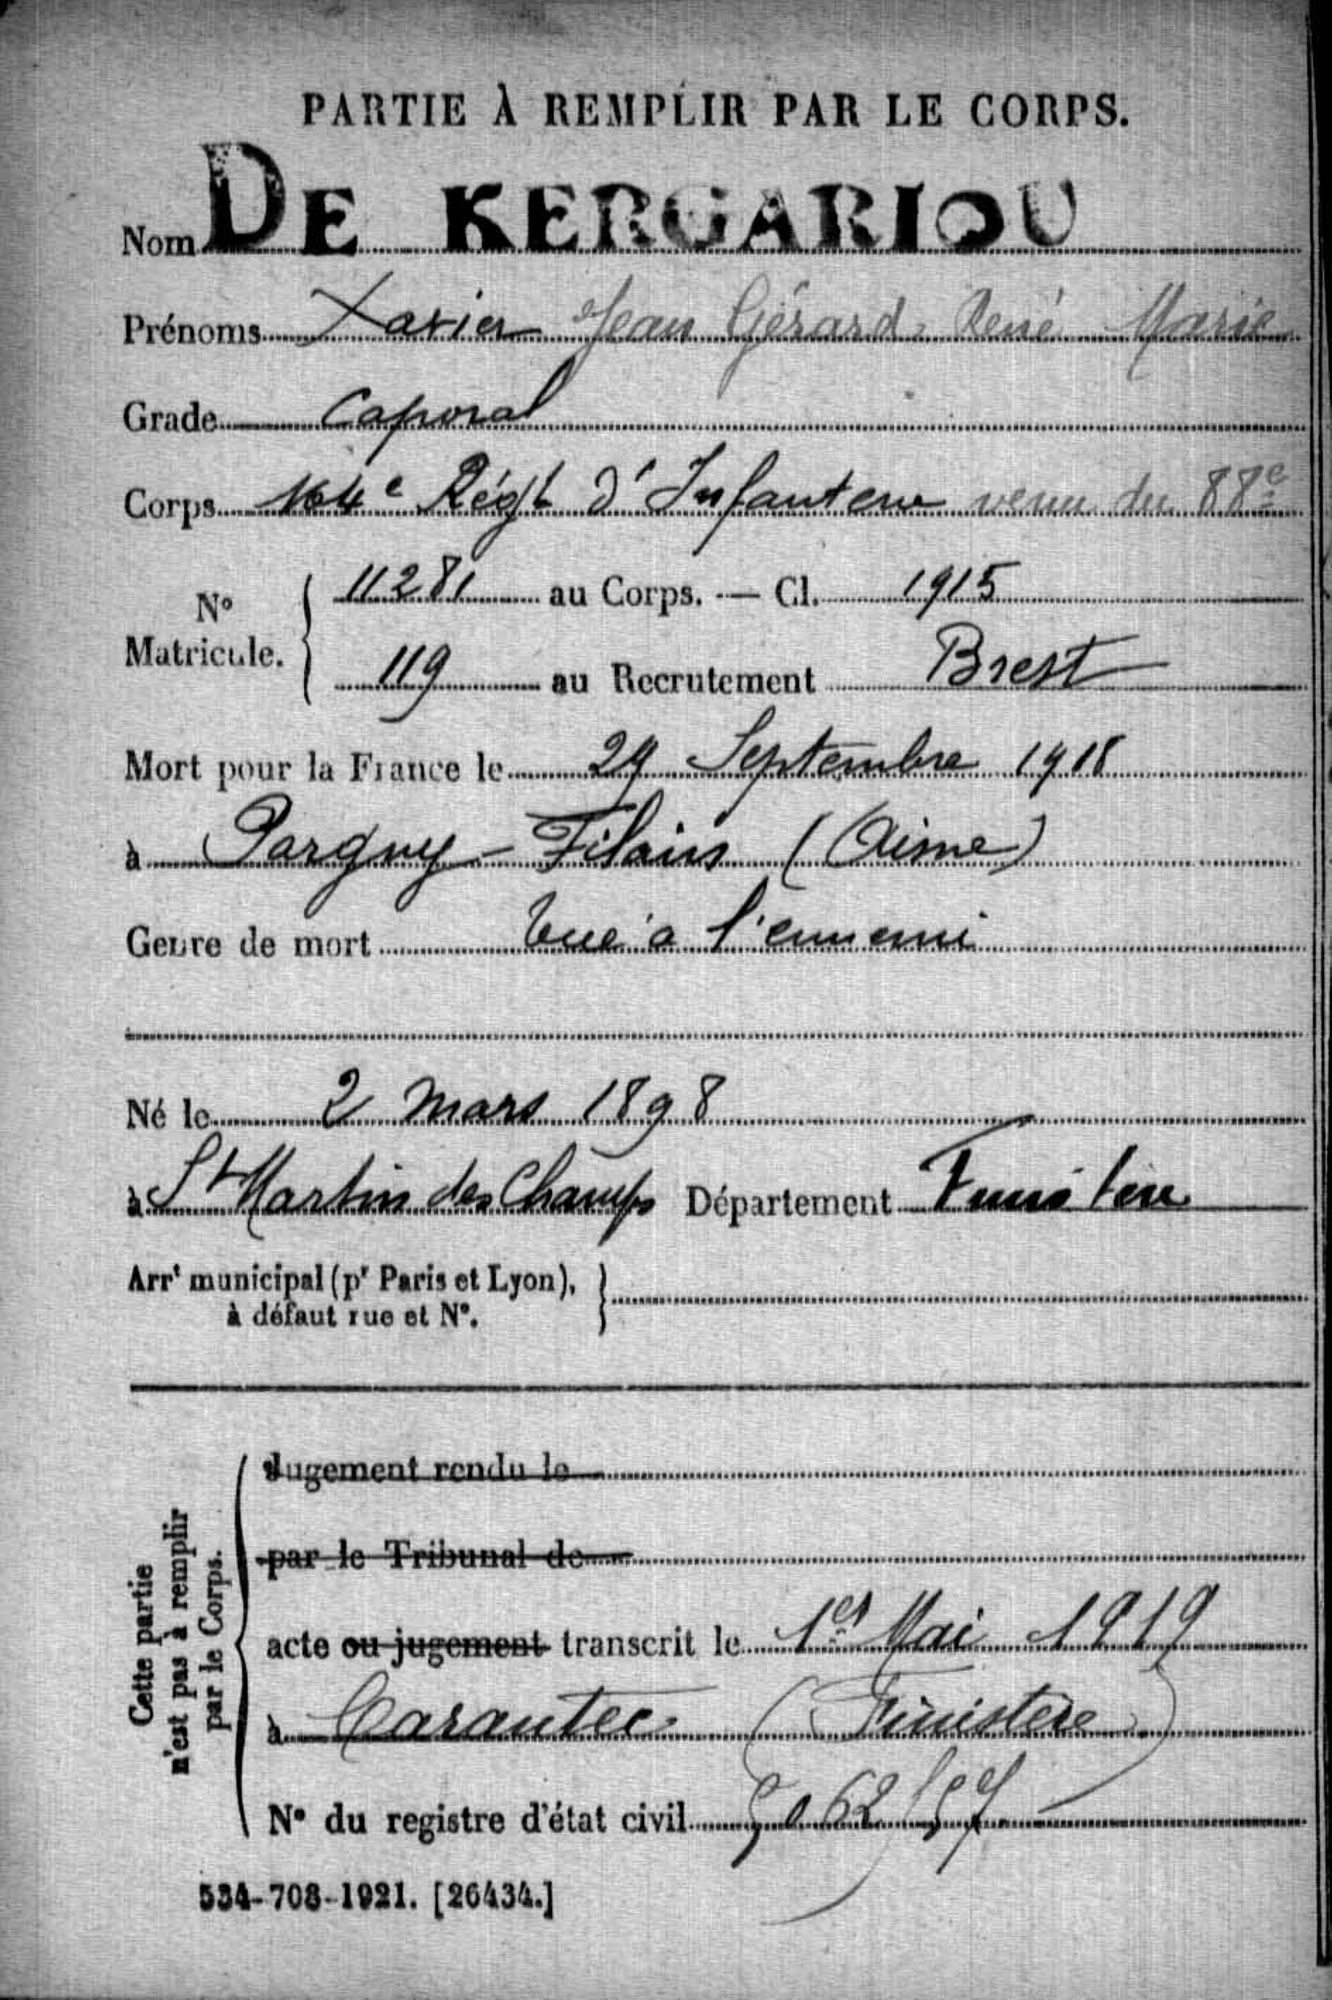 PARTIE À REMPLIR PAR LE CORPS.
Nom DE KERGARIOU
Prénoms Xavier Jean Gérard René Marie
Grade Caporal
Corps 164e Régt d'Infanterie venu du 88e
N° Matricule. 11281 au Corps. — Cl. 1915
119 au Recrutement Brest
Mort pour la France le 29 Septembre 1918
à Pargny - Filain (Aisne)
Genre de mort tué à l'ennemi
Né le 2 Mars 1898
à St Martin des Champs Département Finistère
Arrt municipal (pr Paris et Lyon),
à défaut rue et N°.
Cette partie
n'est pas à remplir
par le Corps.
Jugement rendu le
par le Tribunal de
acte ou jugement transcrit le 1er Mai 1919
à Carantec (Finistère)
N° du registre d'état civil
534-708-1921. [26434.]